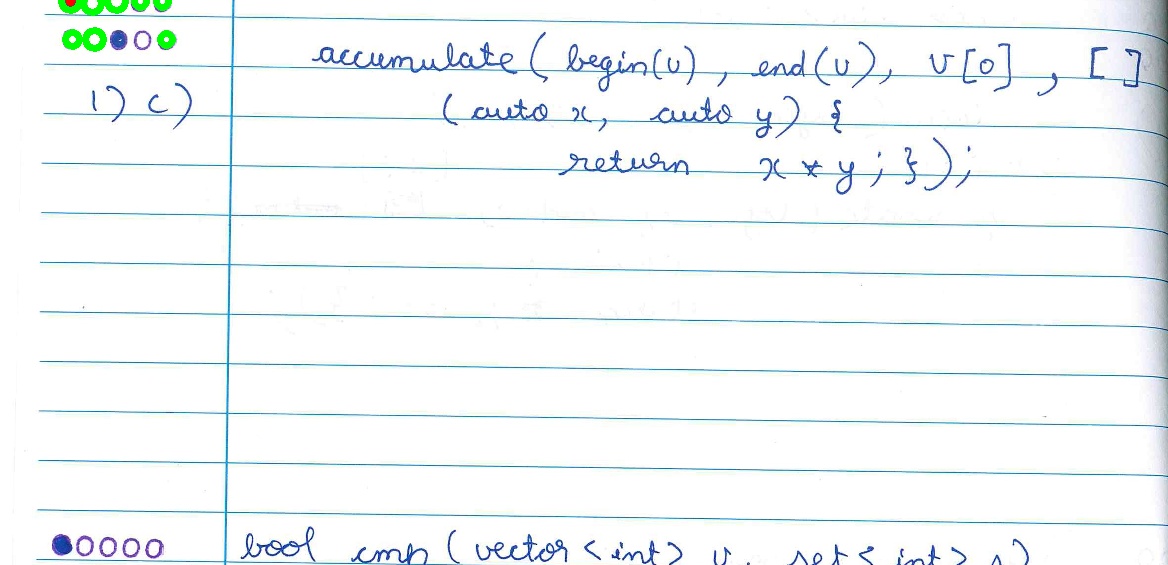 accumulate ( begin(v) , end(v), v[0] , [ ]
1) c) (auto x, auto y) {
return x * y ; } ) ;
bool cmp ( vector < int > v, set < int > s )